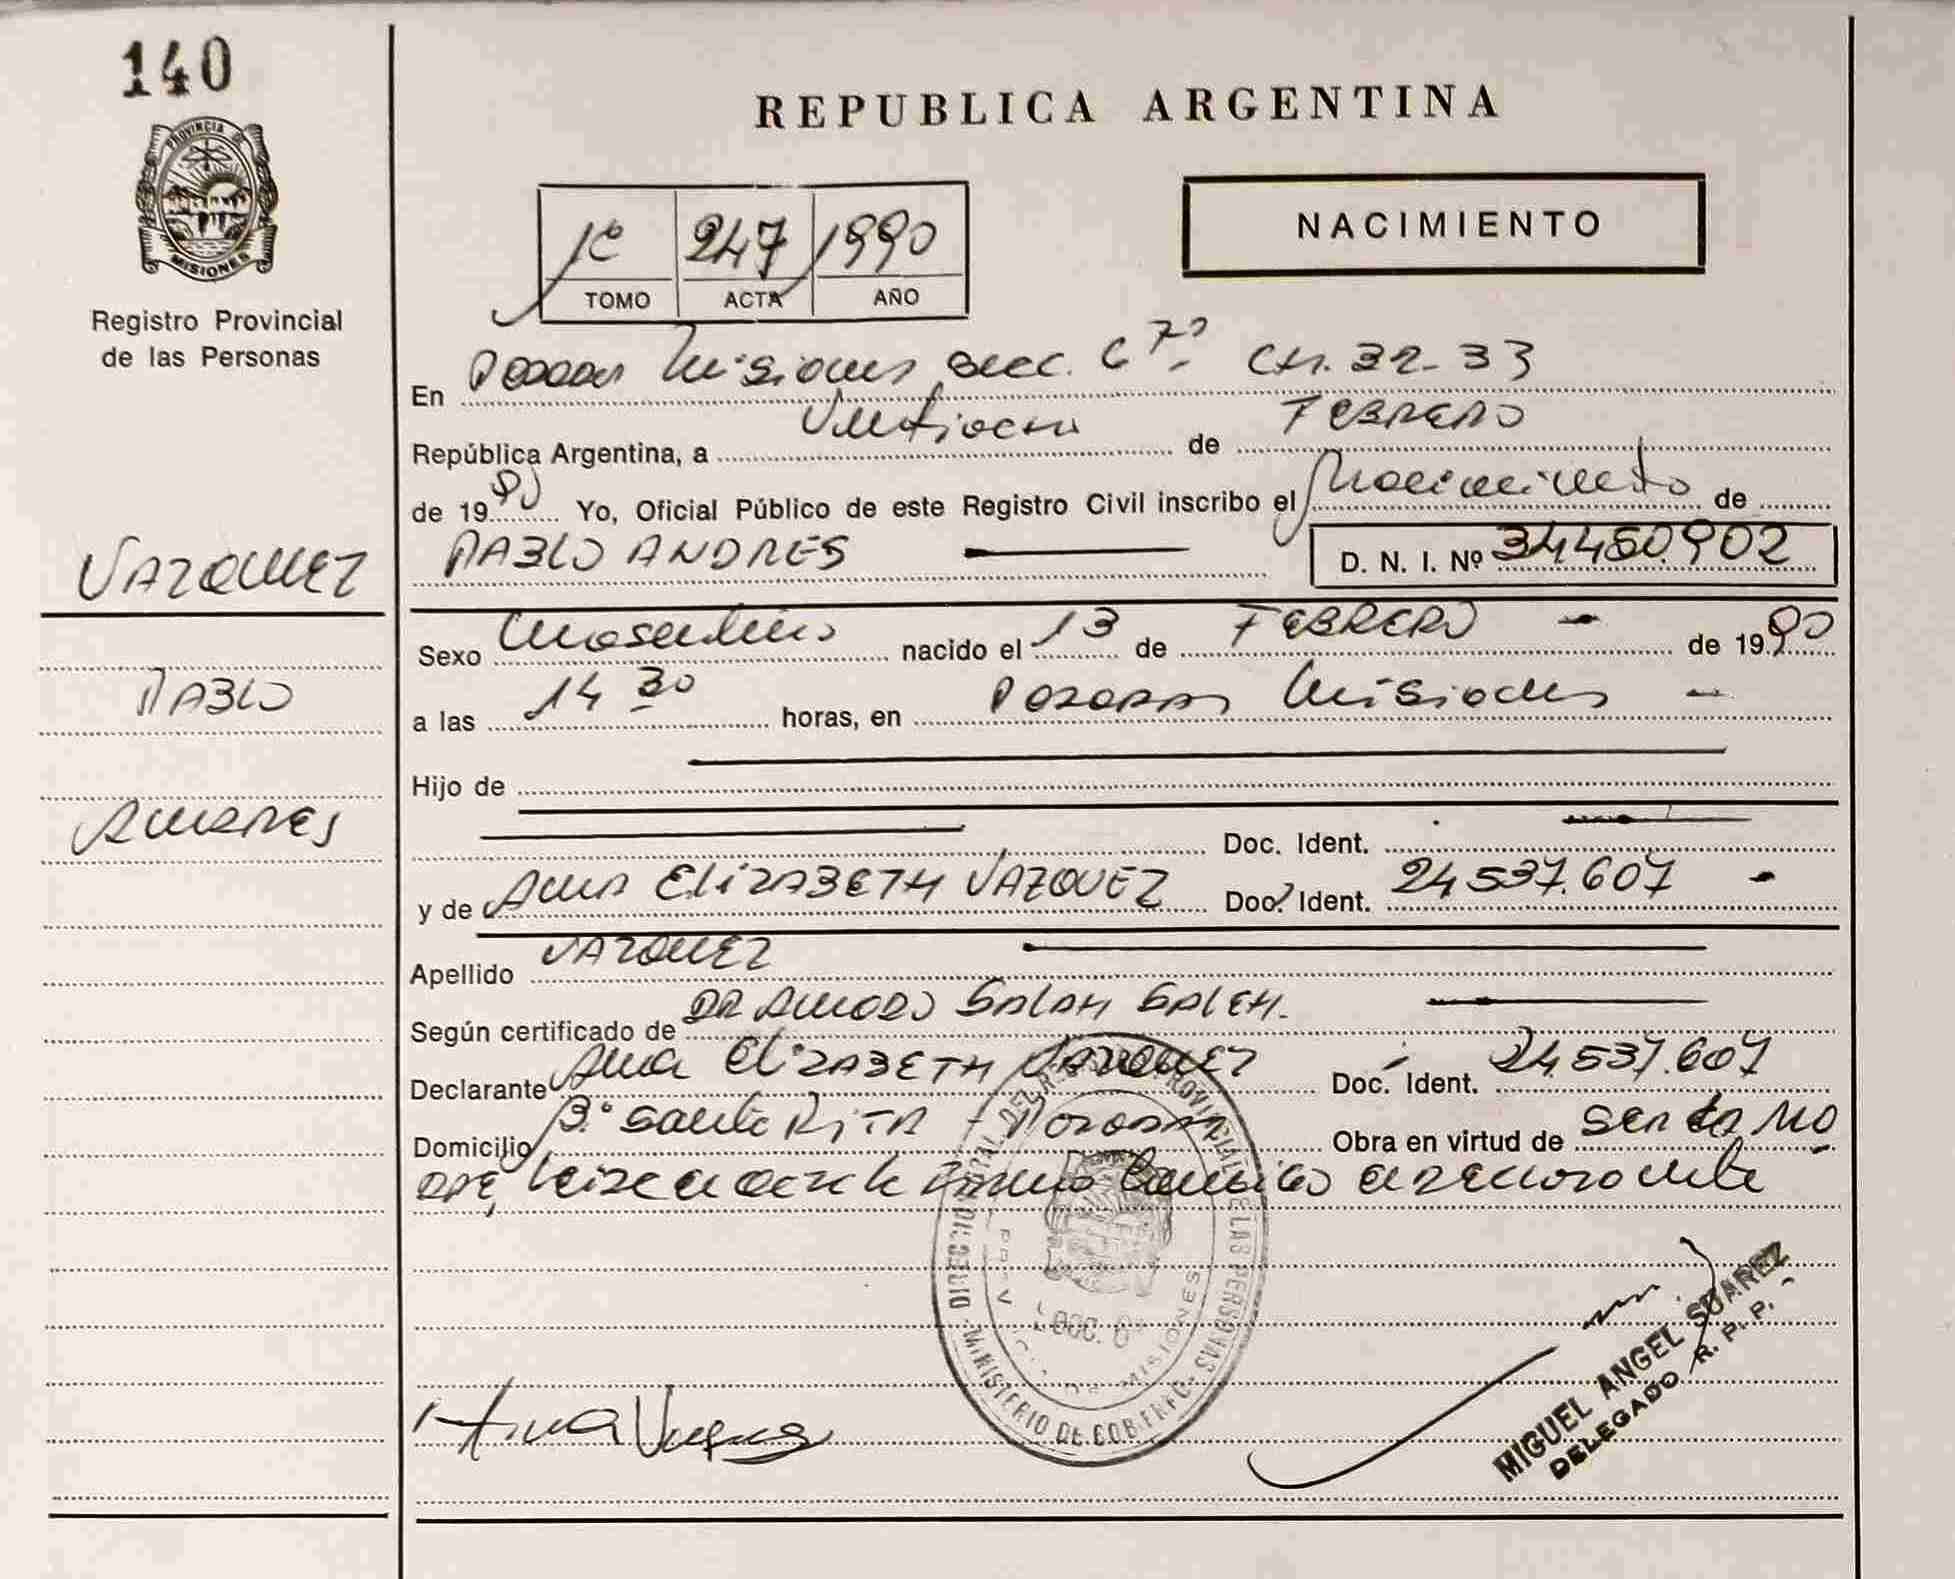 140
PROVINCIA DE
MISIONES
Registro Provincial
de las Personas
REPUBLICA ARGENTINA
NACIMIENTO
1º 247 1990
TOMO ACTA AÑO
En Posadas Misiones Secc. 6 7º Ch. 32-33
República Argentina, a de FEBRERO
de 1990 Yo, Oficial Público de este Registro Civil inscribo el Nacimiento de
PABLO ANDRES D. N. I. Nº 34.450.902
VAZQUEZ
PABLO
ANDRES
Sexo Masculino nacido el 13 de FEBRERO - de 1990
a las 14 30 horas, en Posadas Misiones -
Hijo de
Doc. Ident.
y de ANA ELIZABETH VAZQUEZ Doc. Ident. 24.537.607 -
Apellido VAZQUEZ
Según certificado de DR AMADO SALAH SALEH.
Declarante Ana ELIZABETH VAZQUEZ Doc. Ident. 24.537.607
Domicilio Bº Santa RITA - Posadas Obra en virtud de ser la MA
DRE,
MINISTERIO DE GOBIERNO
MISIONES
Ana Vazquez
MIGUEL ANGEL SUAREZ
DELEGADO R. P. P.